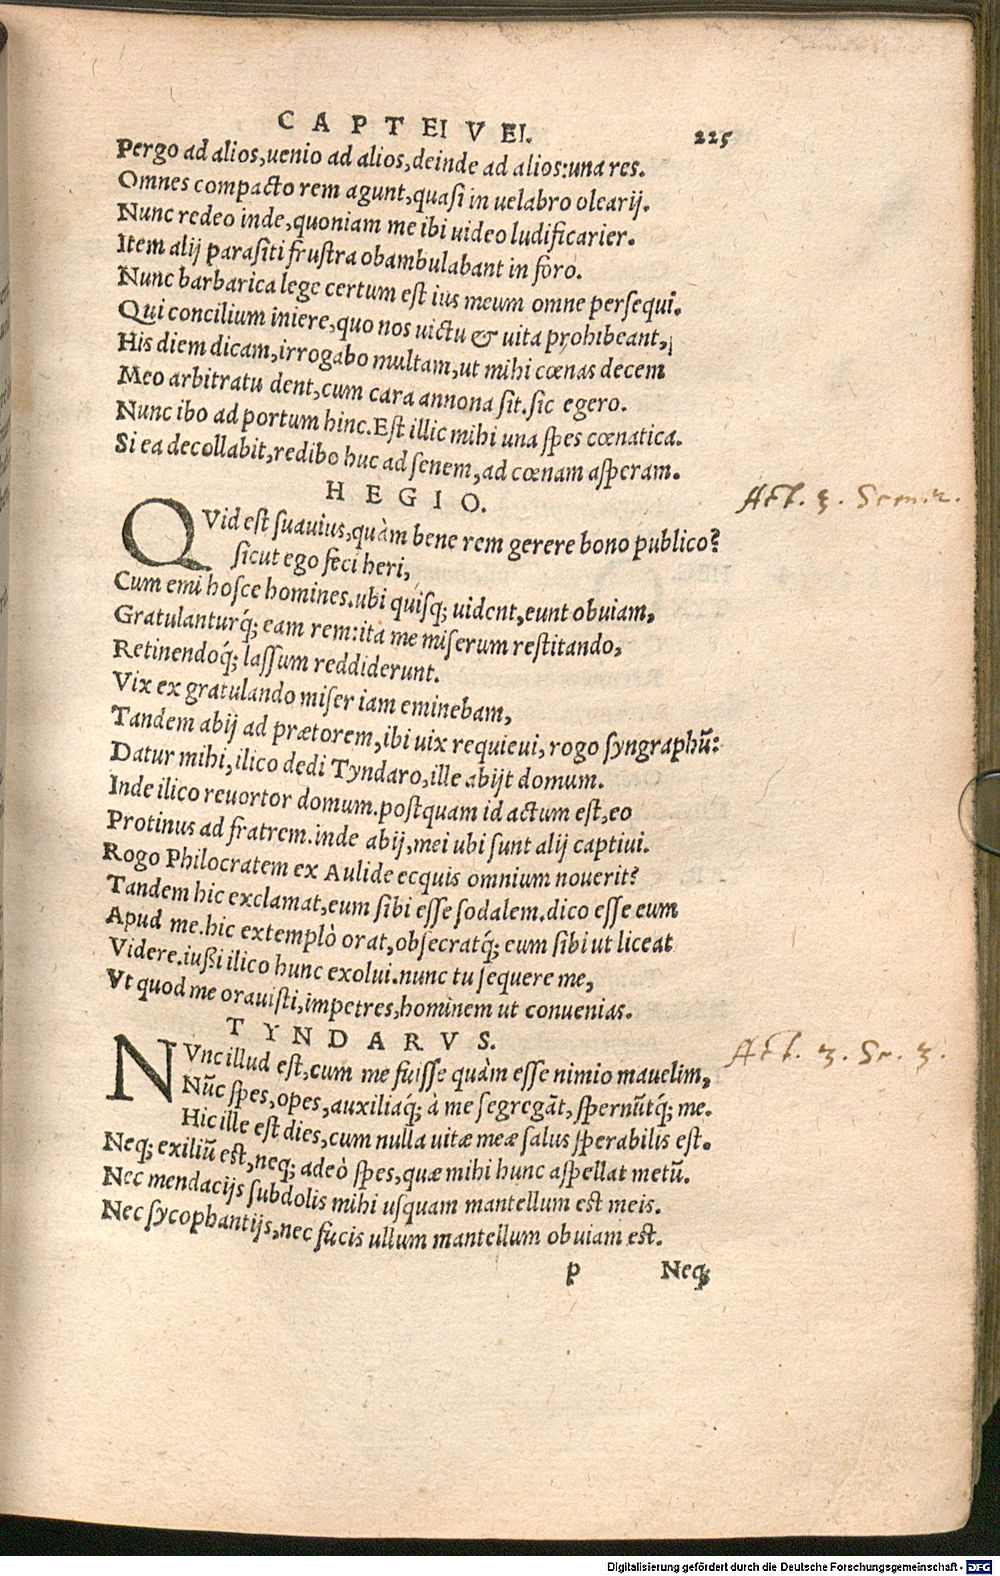 CAPTEI VEI. 225
Pergo ad alios,uenio ad alios,deinde ad alios:una res.
Omnes compacto rem agunt,quasi in uelabro olearij.
Nunc redeo inde,quoniam me ibi uideo ludificarier.
Item alij parasiti frustra obambulabant in foro.
Nunc barbarica lege certum est ius meum omne persequi.
Qui concilium iniere,quo nos uictu & uita prohibeant,
His diem dicam,irrogabo multam,ut mihi cœnas decem
Meo arbitratu dent,cum cara annona sit.sic egero.
Nunc ibo ad portum hinc.Est illic mihi una spes cœnatica.
Si ea decollabit,redibo huc ad senem,ad cœnam asperam.
HEGIO.
Act. 3. Scen. 2.
QVid est suauius,quàm bene rem gerere bono publico?
sicut ego feci heri,
Cum emi hosce homines.ubi quisq; uident,eunt obuiam,
Gratulanturq́; eam rem:ita me miserum restitando,
Retinendoq́; lassum reddiderunt.
Vix ex gratulando miser iam eminebam,
Tandem abij ad prætorem,ibi uix requieui,rogo syngraphū:
Datur mihi,ilico dedi Tyndaro,ille abijt domum.
Inde ilico reuortor domum.postquam id actum est,eo
Protinus ad fratrem.inde abij,mei ubi sunt alij captiui.
Rogo Philocratem ex Aulide ecquis omnium nouerit?
Tandem hic exclamat,eum sibi esse sodalem.dico esse eum
Apud me.hic extemplò orat,obsecratq́; eum sibi ut liceat
Videre.iußi ilico hunc exolui.nunc tu sequere me,
Vt quod me orauisti,impetres,hominem ut conuenias.
TYNDARVS.
Act. 3. Sc. 3.
NVnc illud est,cum me fuisse quàm esse nimio mauelim,
Nūc spes,opes,auxiliaq́; à me segregāt,spernūtq́; me.
Hic ille est dies,cum nulla uitæ meæ salus sperabilis est.
Neq; exiliū est,neq; adeò spes,quæ mihi hunc aspellat metū.
Nec mendacijs subdolis mihi usquam mantellum est meis.
Nec sycophantijs,nec fucis ullum mantellum obuiam est.
p Neq;
Digitalisierung gefördert durch die Deutsche Forschungsgemeinschaft - DFG